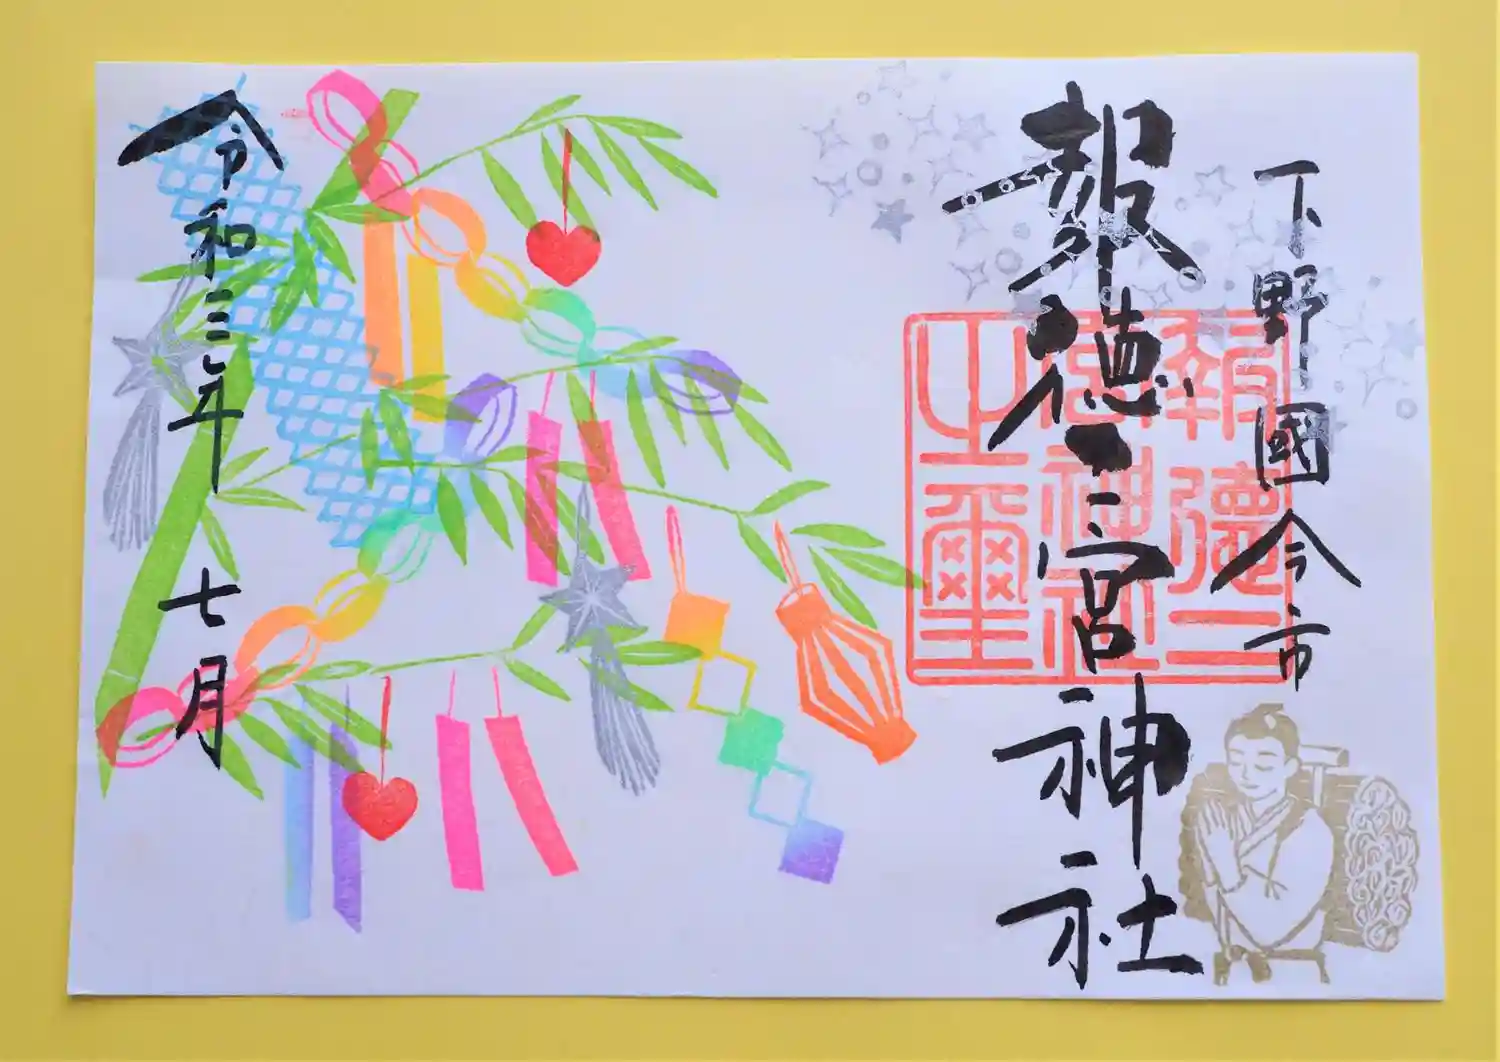 下野國今市
報徳二宮神社
報徳二
宮神社
之璽
令和三年
七月